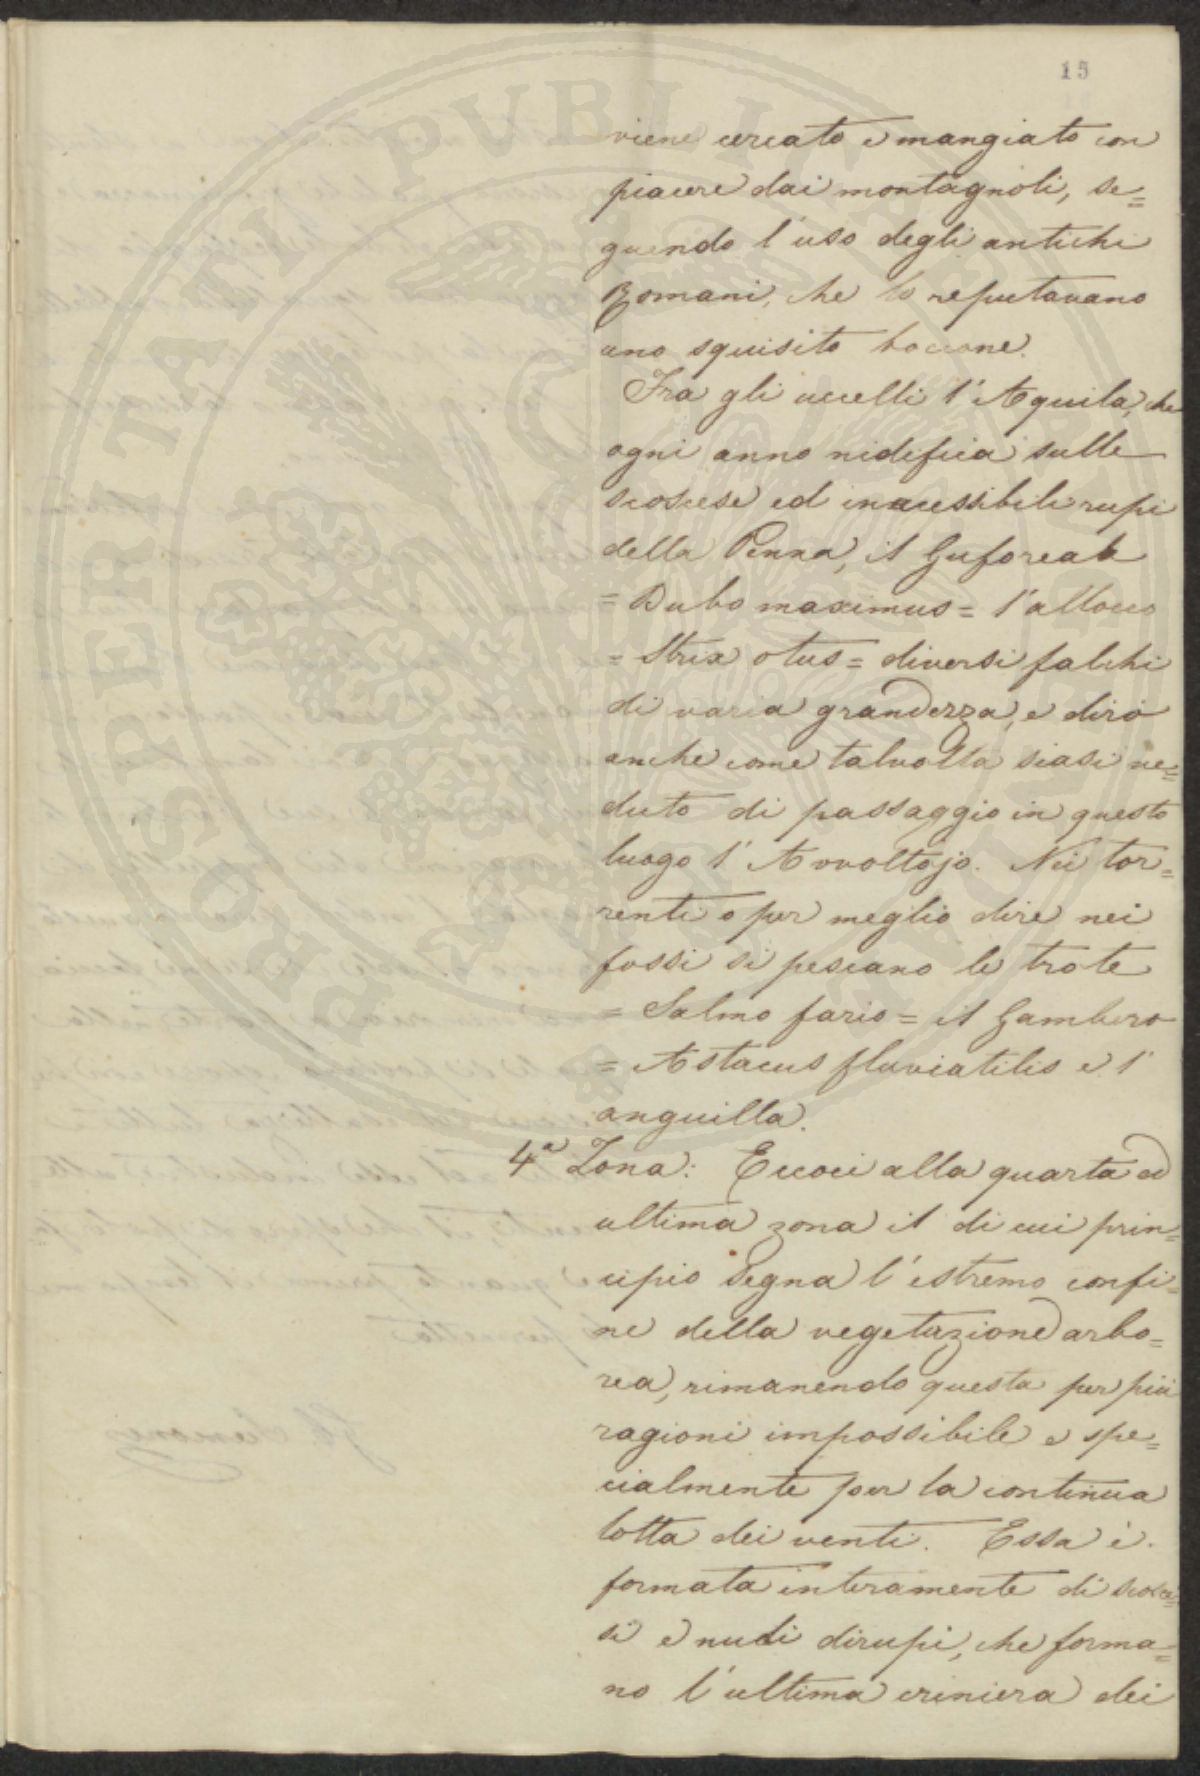 15
viene cercato e mangiato con
piacere dai montagnoli, se=
guendo l'uso degli antichi
Romani, che lo reputavano
uno squisito boccone.
Fra gli uccelli l'Aquila, che
ogni anno nidifica sulle
scoscese ed inaccessibili rupi
della Penna, il Gufo reale
= Bubo maximus = l'allocco
= Strix otus = diversi falchi
di varia grandezza, e dirò
anche come talvolta siasi ve=
duto di passaggio in questo
luogo l'Avvoltojo. Nei tor=
renti o per meglio dire nei
fossi si pescano le trote
= Salmo fario = il Gambero
= Astacus fluviatilis e l'
anguilla.
4ª Zona: Eccoci alla quarta ed
ultima zona il di cui prin=
cipio segna l'estremo confi=
ne della vegetazione arbo=
rea, rimanendo questa per più
ragioni impossibile e spe=
cialmente per la continua
lotta dei venti. Essa è
formata interamente di scosce=
si e nudi dirupi, che forma=
no l'ultima criniera dei
PROSPERITATI PUBLICAE